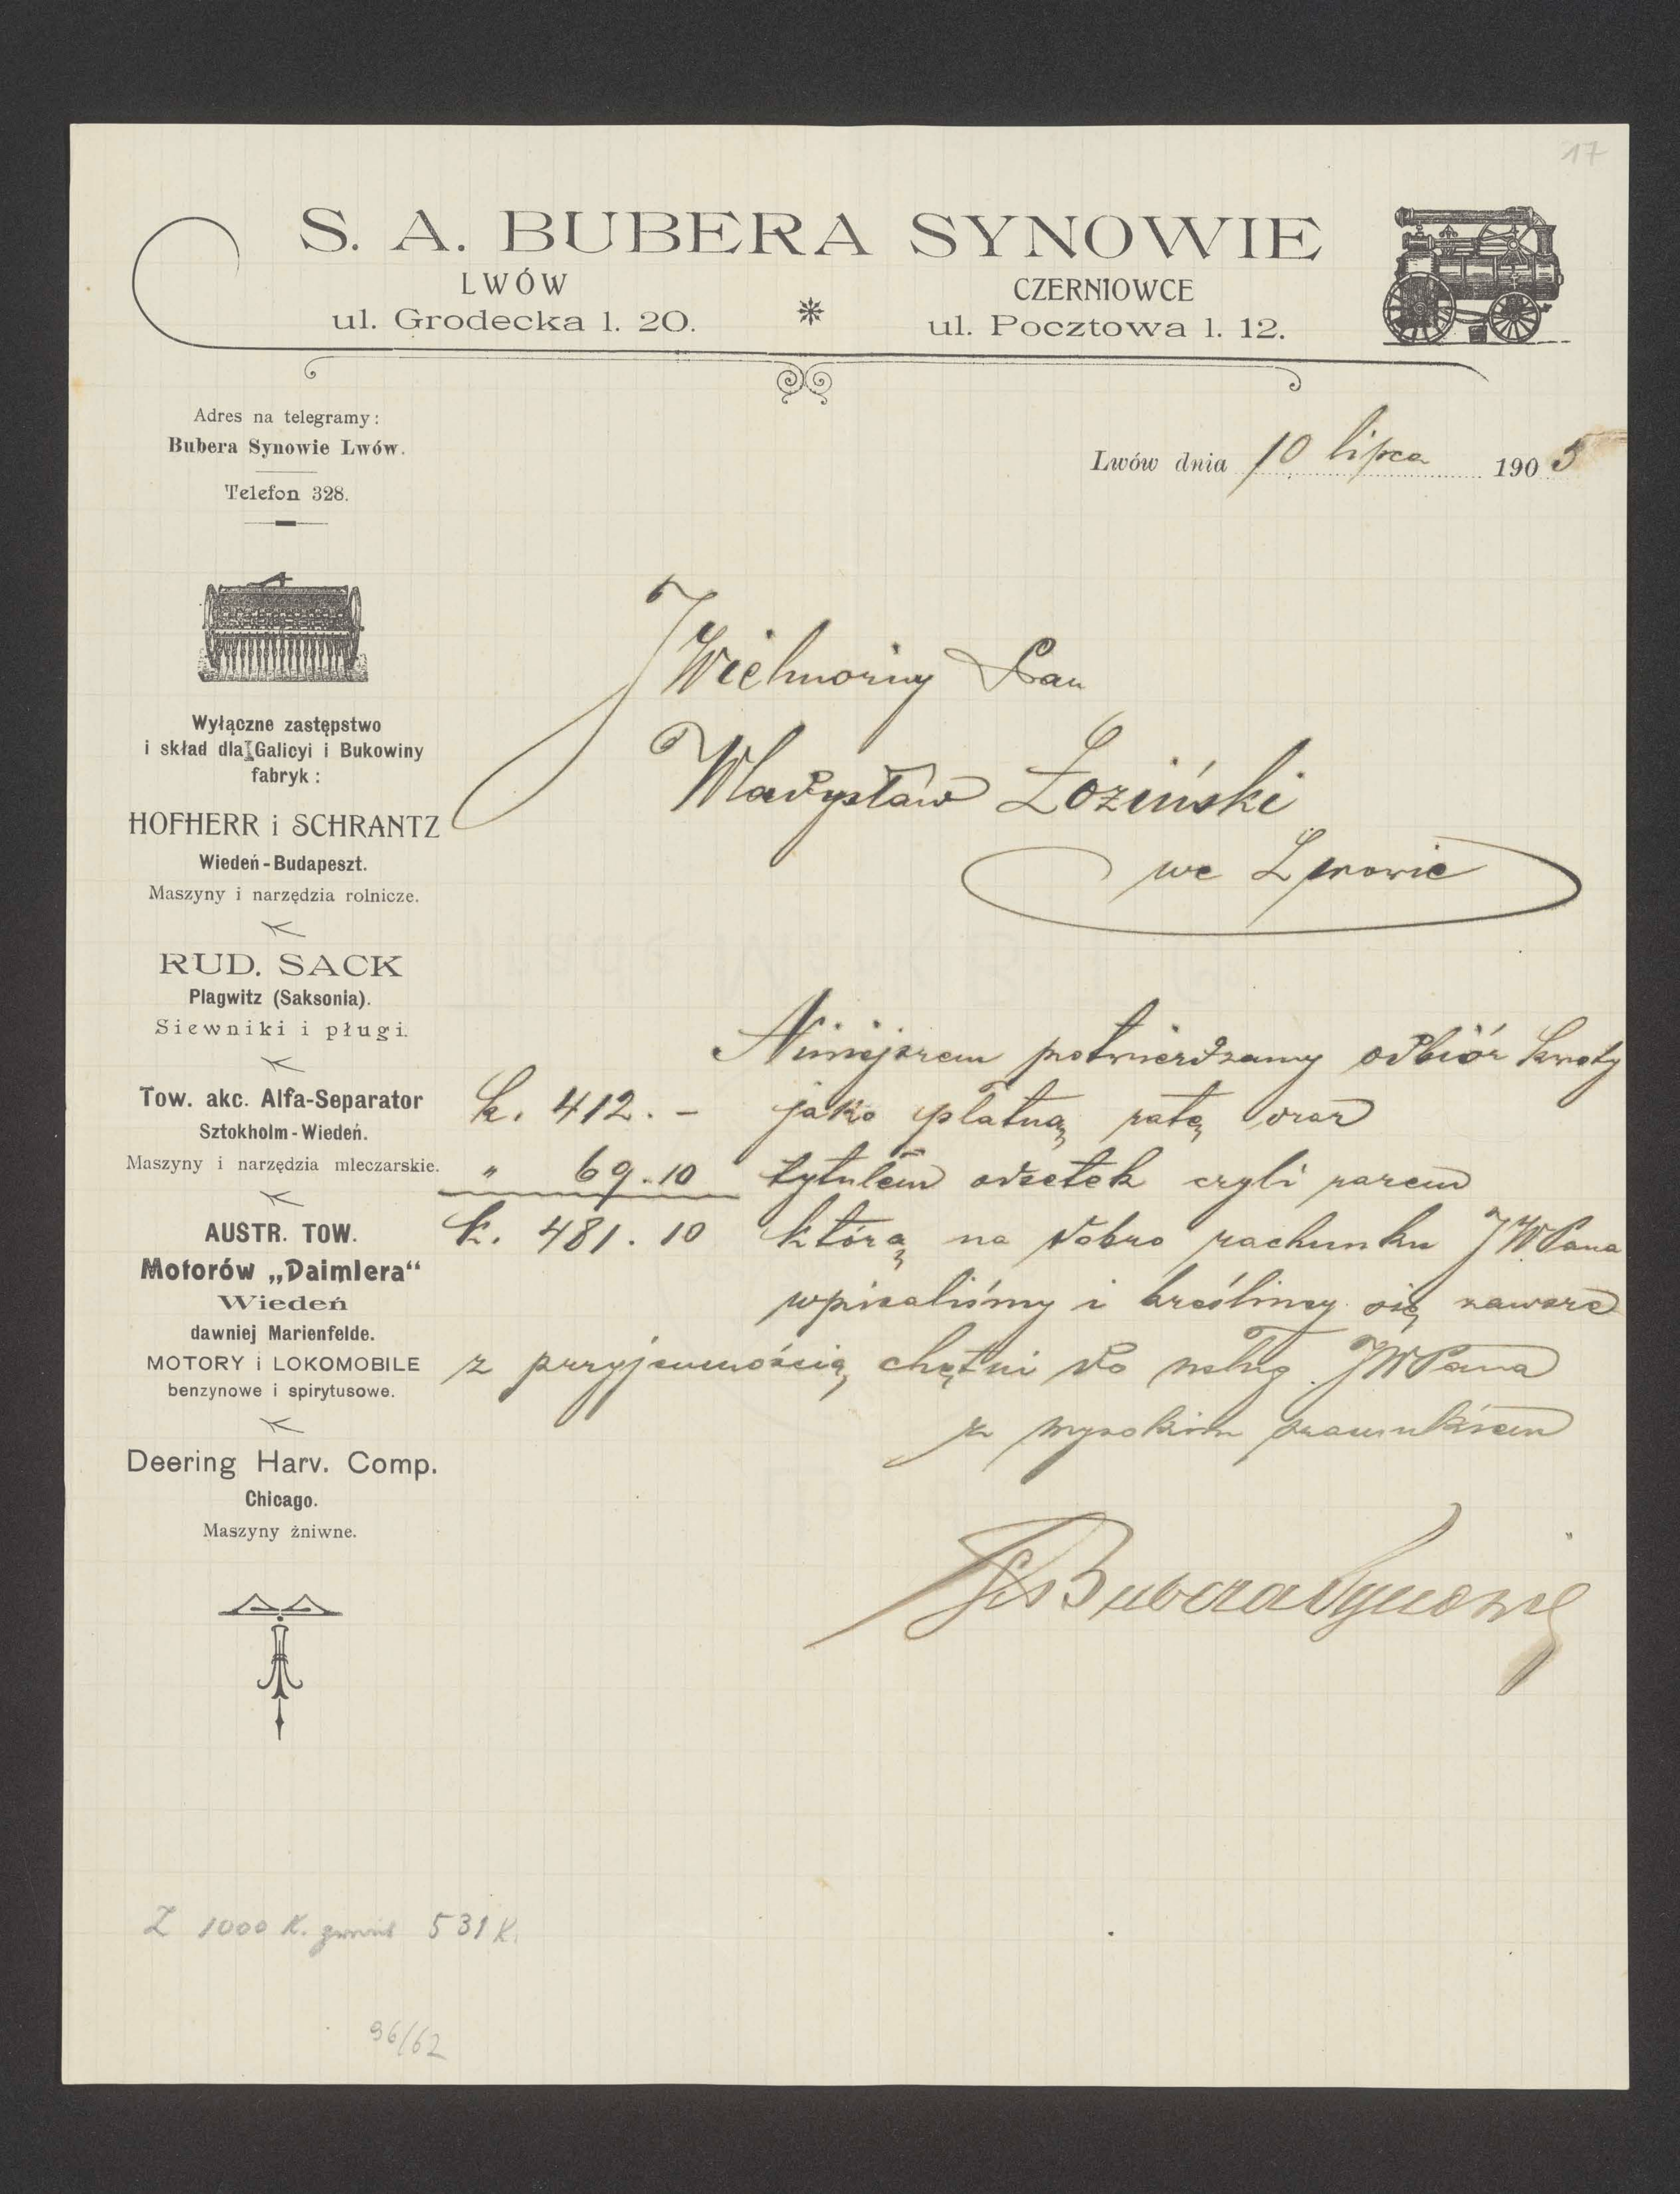 17
S. A. BUBERA SYNOWIE
LWÓW
ul. Grodecka l. 20.
CZERNIOWCE
ul. Pocztowa l. 12.
Adres na telegramy:
Bubera Synowie Lwów.
Telefon 328.
Lwów dnia 10 lipca 1905
Wyłączne zastępstwo
i skład dla Galicyi i Bukowiny
fabryk:
HOFHERR i SCHRANTZ
Wiedeń-Budapeszt.
Maszyny i narzędzia rolnicze.
RUD. SACK
Plagwitz (Saksonia).
Siewniki i pługi.
Tow. akc. Alfa-Separator
Sztokholm-Wiedeń.
Maszyny i narzędzia mleczarskie.
AUSTR. TOW.
Motorów „Daimlera“
Wiedeń
dawniej Marienfelde.
MOTORY i LOKOMOBILE
benzynowe i spirytusowe.
Deering Harv. Comp.
Chicago.
Maszyny żniwne.
JWielmożny Pan
Władysław Łoziński
we Lwowie
Niniejszem potwierdzamy odbiór kwoty
k. 412. – jako płatną ratę oraz
" 69.10 tytułem odsetek czyli razem
k. 481.10 którą na dobro rachunku JWPana
wpisaliśmy i kreślimy się zawsze
z przyjemnością chętni do usług JWPana
z wysokim szacunkiem
SABubera Synowie
Z 1000 K. 531 K.
96/62